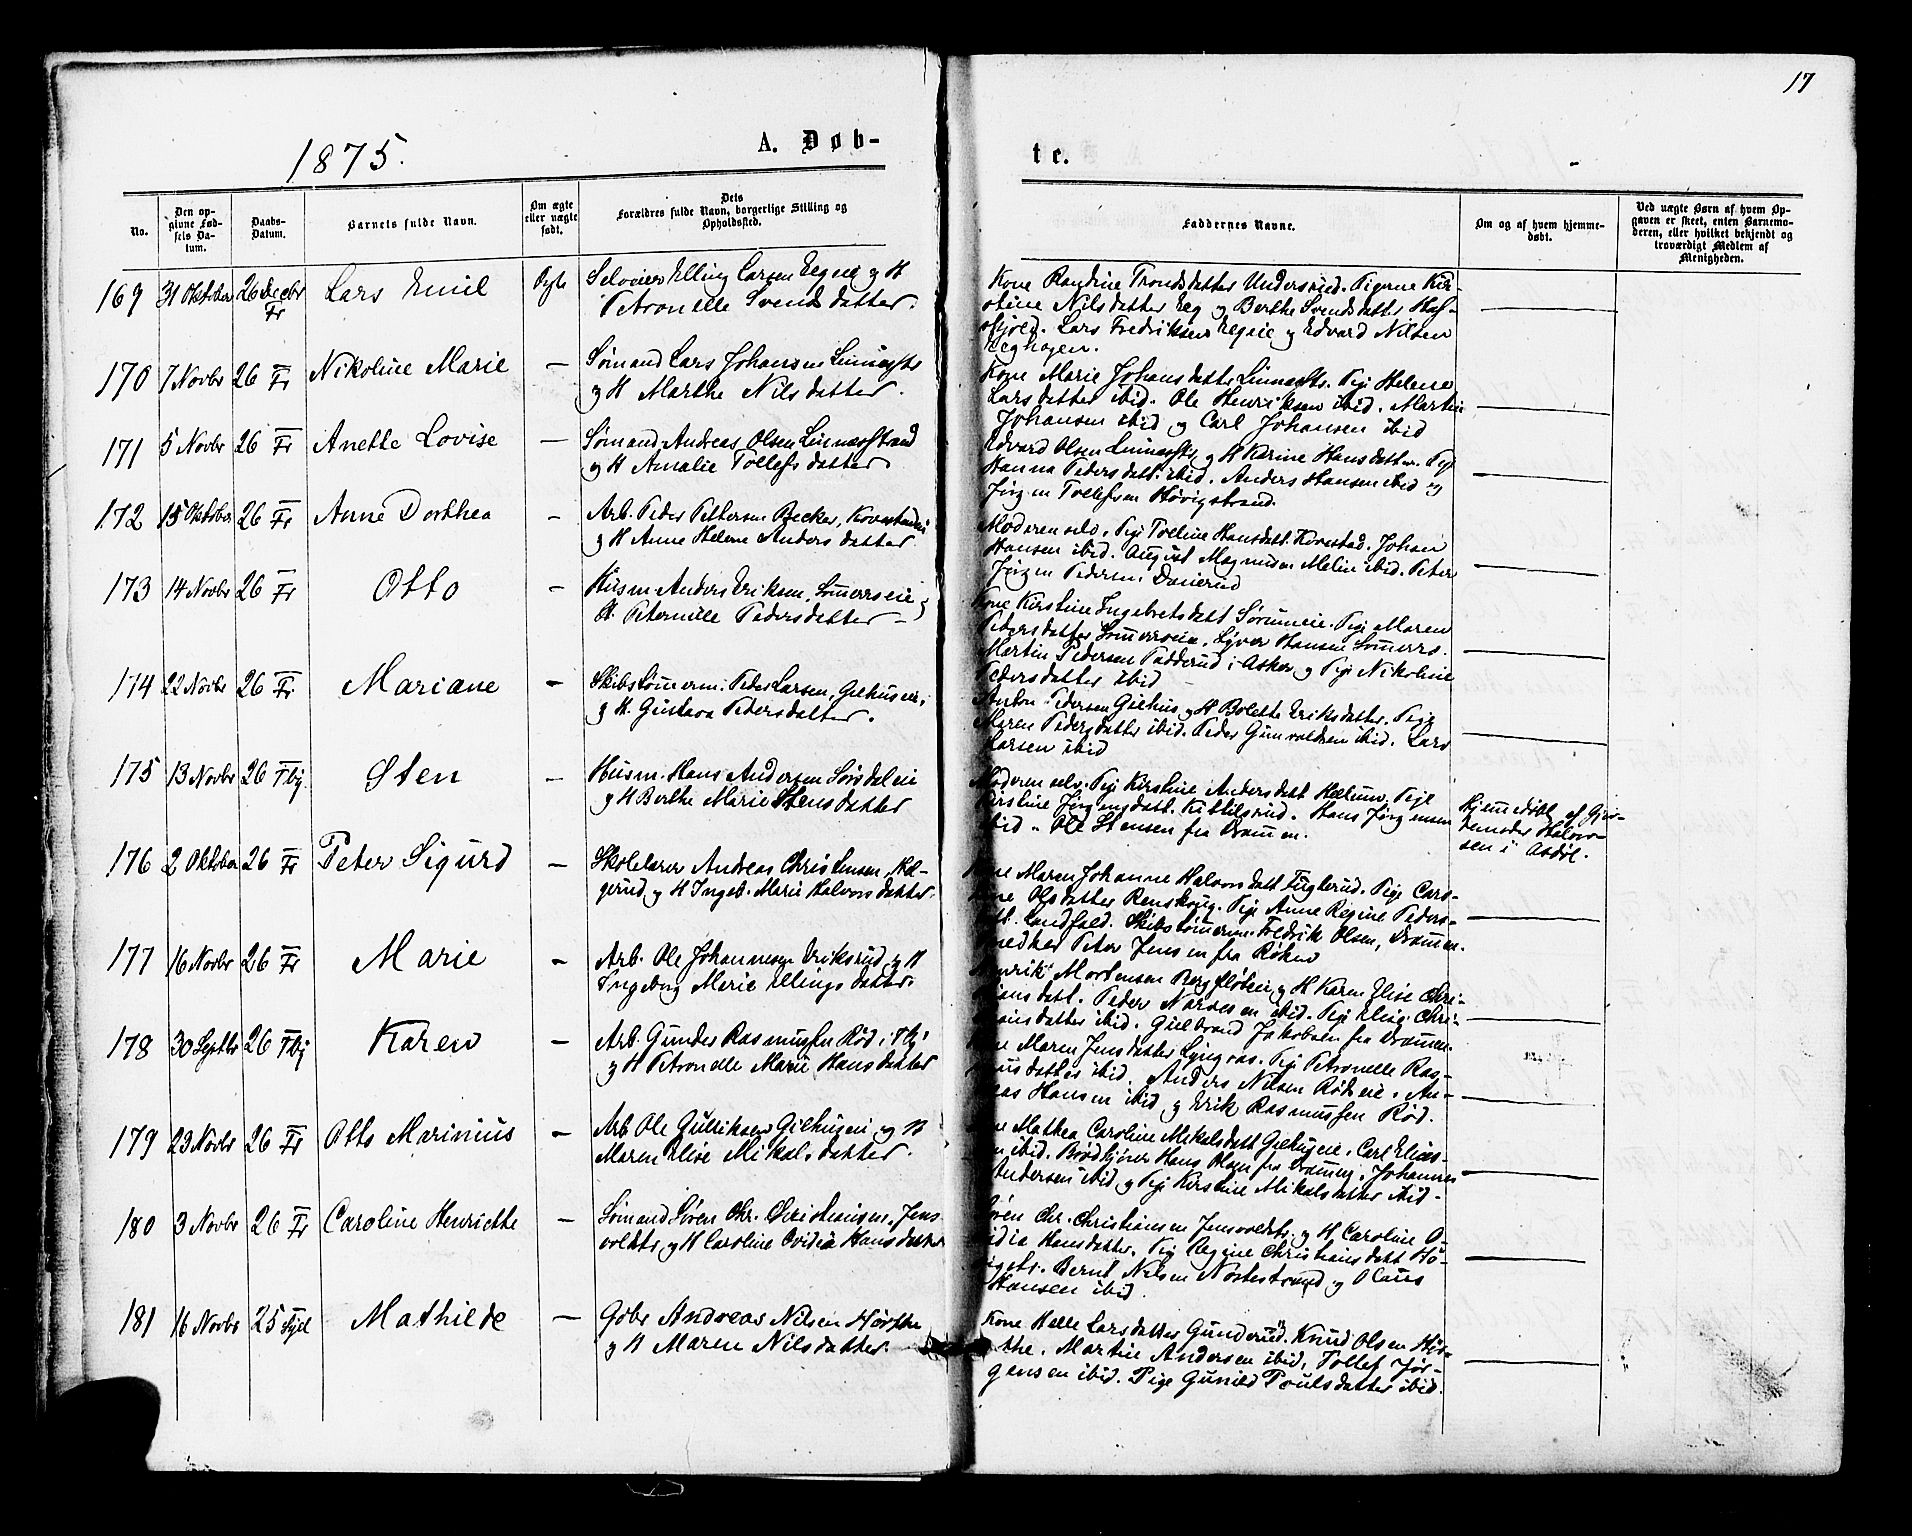 17
1875.
A. Døb-
te.
No.
Den op-
givne Fød-
sels Da-
tum.
Daabs-
Datum.
Barnets fulde Navn.
Om ægte
eller uægte
født.
Dets
Forældres fulde Navn, borgerlige Stilling og
Opholdssted.
Faddernes Navne.
Om og af hvem hjemme-
døbt.
Ved uægte Børn af hvem Op-
gaven er skeet, enten Barnemo-
deren, eller hvilket bekjendt og
troværdigt Medlem af
Menigheden.
169 31 Oktober 26 Decbr Fr Lars Emil Ægte Selveier Elling Larsen Egeie og H
Petronelle Svendsdatter.
Kone Randine Trondsdatter Undersrud. Pigerne Kir-
stine Nilsdatter Eeg og Berthe Svendsdatter Haf-
Lars Fredriksen Egeie og Edvard Nilsen
Eeghagen.
170 7 Novbr 26 Fr Nikoline Marie — Sømand Lars Johansen Linnæsstr
og H Marthe Nilsdatter.
Kone Marie Johansdatter Linnæsstr. Pige Helene
Larsdatter ibid. Ole Henriksen ibid. Martin
Johansen ibid og Carl Johansen ibid
171 5 Novbr 26 Fr Anette Lovise — Sømand Andreas Olsen Linnæsstrand
og H Amalie Tollefsdatter
Edvard Olsen Linnæsstr og H Karine Hansdatter. Pige
Hanna Pedersdatt. ibid. Anders Hansen ibid og
Jørgen Tollefsen Høvigstrand.
172 15 Oktober 26 Fr Anne Dorthea — Arb. Peder Pettersen Becker,
og H Anne Helene Andersdatter
Moderen selv. Pige Torline Hansdatt. Kovestad. Johan
Hansen ibid. August Magnusen Melin ibid. Peter
Jørgen Pedersen
173 14 Novbr 26 Fr Otto — Husm. Anders Eriksen,
H. Peternille Pedersdatter —
Kone Kirstine Ingebretsdatt Pige Maren
Pedersdatter Hansen
Martin Pedersen i Asker og Pige Nikoline
Pedersdatter ibid
174 22 Novbr 26 Fr. Mariane — Skibstømerm. Peder Larsen,
og H. Gustava Pedersdatter.
Anton Pedersen Gilhus og H Bolette Eriksdatter. Pige
Maren Pedersdatter ibid. Peder Gunvaldsen ibid. Lars
Larsen ibid
175 13 Novbr 26 Tbg Sten — Husm. Hans Andersen Sørsdaleie
og H Berthe Marie Stensdatter
Moderen selv. Pige Kirstine Andersdatt Hellum. Pige
Kirstine Jørgensdatt. Kittilsrud. Hans Jørgensen
ibid. Ole Stensen fra Drammen.
Hjemmedøbt af Gjor-
demoder Halvor-
sen i Asdøl.
176 2 Oktober 26 Fr Peter Sigurd — Skolelærer Andreas Christensen, Al-
gerud og H Ingeb. Marie Halvorsdatter
Kone Maren Johanne Halvorsdatt Fuglerud. Pige Caro-
line Olsdatter Renskoug. Pige Anne Regine Peders-
datt. Landfald. Skibstømerm Fredrik Olsen, Drammen.
Smedker Peter Jensen fra Røken
177 16 Novbr 26 Fr Marie — Arb. Ole Johannesen Eriksrud og H
Ingeborg Marie Ellingsdatter.
Henrik Mortensen Bergfløteie og H Karen Elise Chri-
stiansdatt. Peder Narvesen ibid. Pige Chri-
stiansdatter ibid. Gulbrand Jakobsen fra Drammen.
178 30 Septbr 26 Tbg Karen — Arb. Gunder Rasmussen Rød i Tbg
og H Petronelle Marie Hansdatter
Kone Maren Jensdatter Lyngaas. Pige Petronelle Ras-
musdatter ibid. Anders Nilsen Rødseie. An-
dreas Hansen ibid og Erik Rasmussen Rød.
179 23 Novbr 26 Fr Otto Marinius — Arb Ole Gulliksen Gilhuseie og H
Maren Elise Mikalsdatter.
Kone Mathea Caroline Mikalsdatt Gilhuseie. Carl Elias-
sen ibid. Brødkjører Hans Olsen fra Drammen. Johannes
Andersen ibid og Pige Kirstine Mikalsdatter ibid.
180 3 Novbr 26 Fr Caroline Henriette — Sømand Søren Chr. Christiansen, Jens-
voldstr og H Caroline Ovidia Hansdatter
Søren Chr. Christiansen Jensvoldstr. og H Caroline O-
vidia Hansdatter. Pige Regine Christiansdatt Hø-
vigstr. Bernt Nilsen Nøstestrand og Olaus
Hansen ibid.
181 16 Novbr 25 Syll Mathilde — Gdbr Andreas Nilsen Hørthe
og H Maren Nilsdatter.
Kone Helle Larsdatter Gunderud. Knud Olsen Hør-
the. Martin Andersen ibid, Tollef Jør-
gensen ibid. Pige Gunild Poulsdatter ibid.